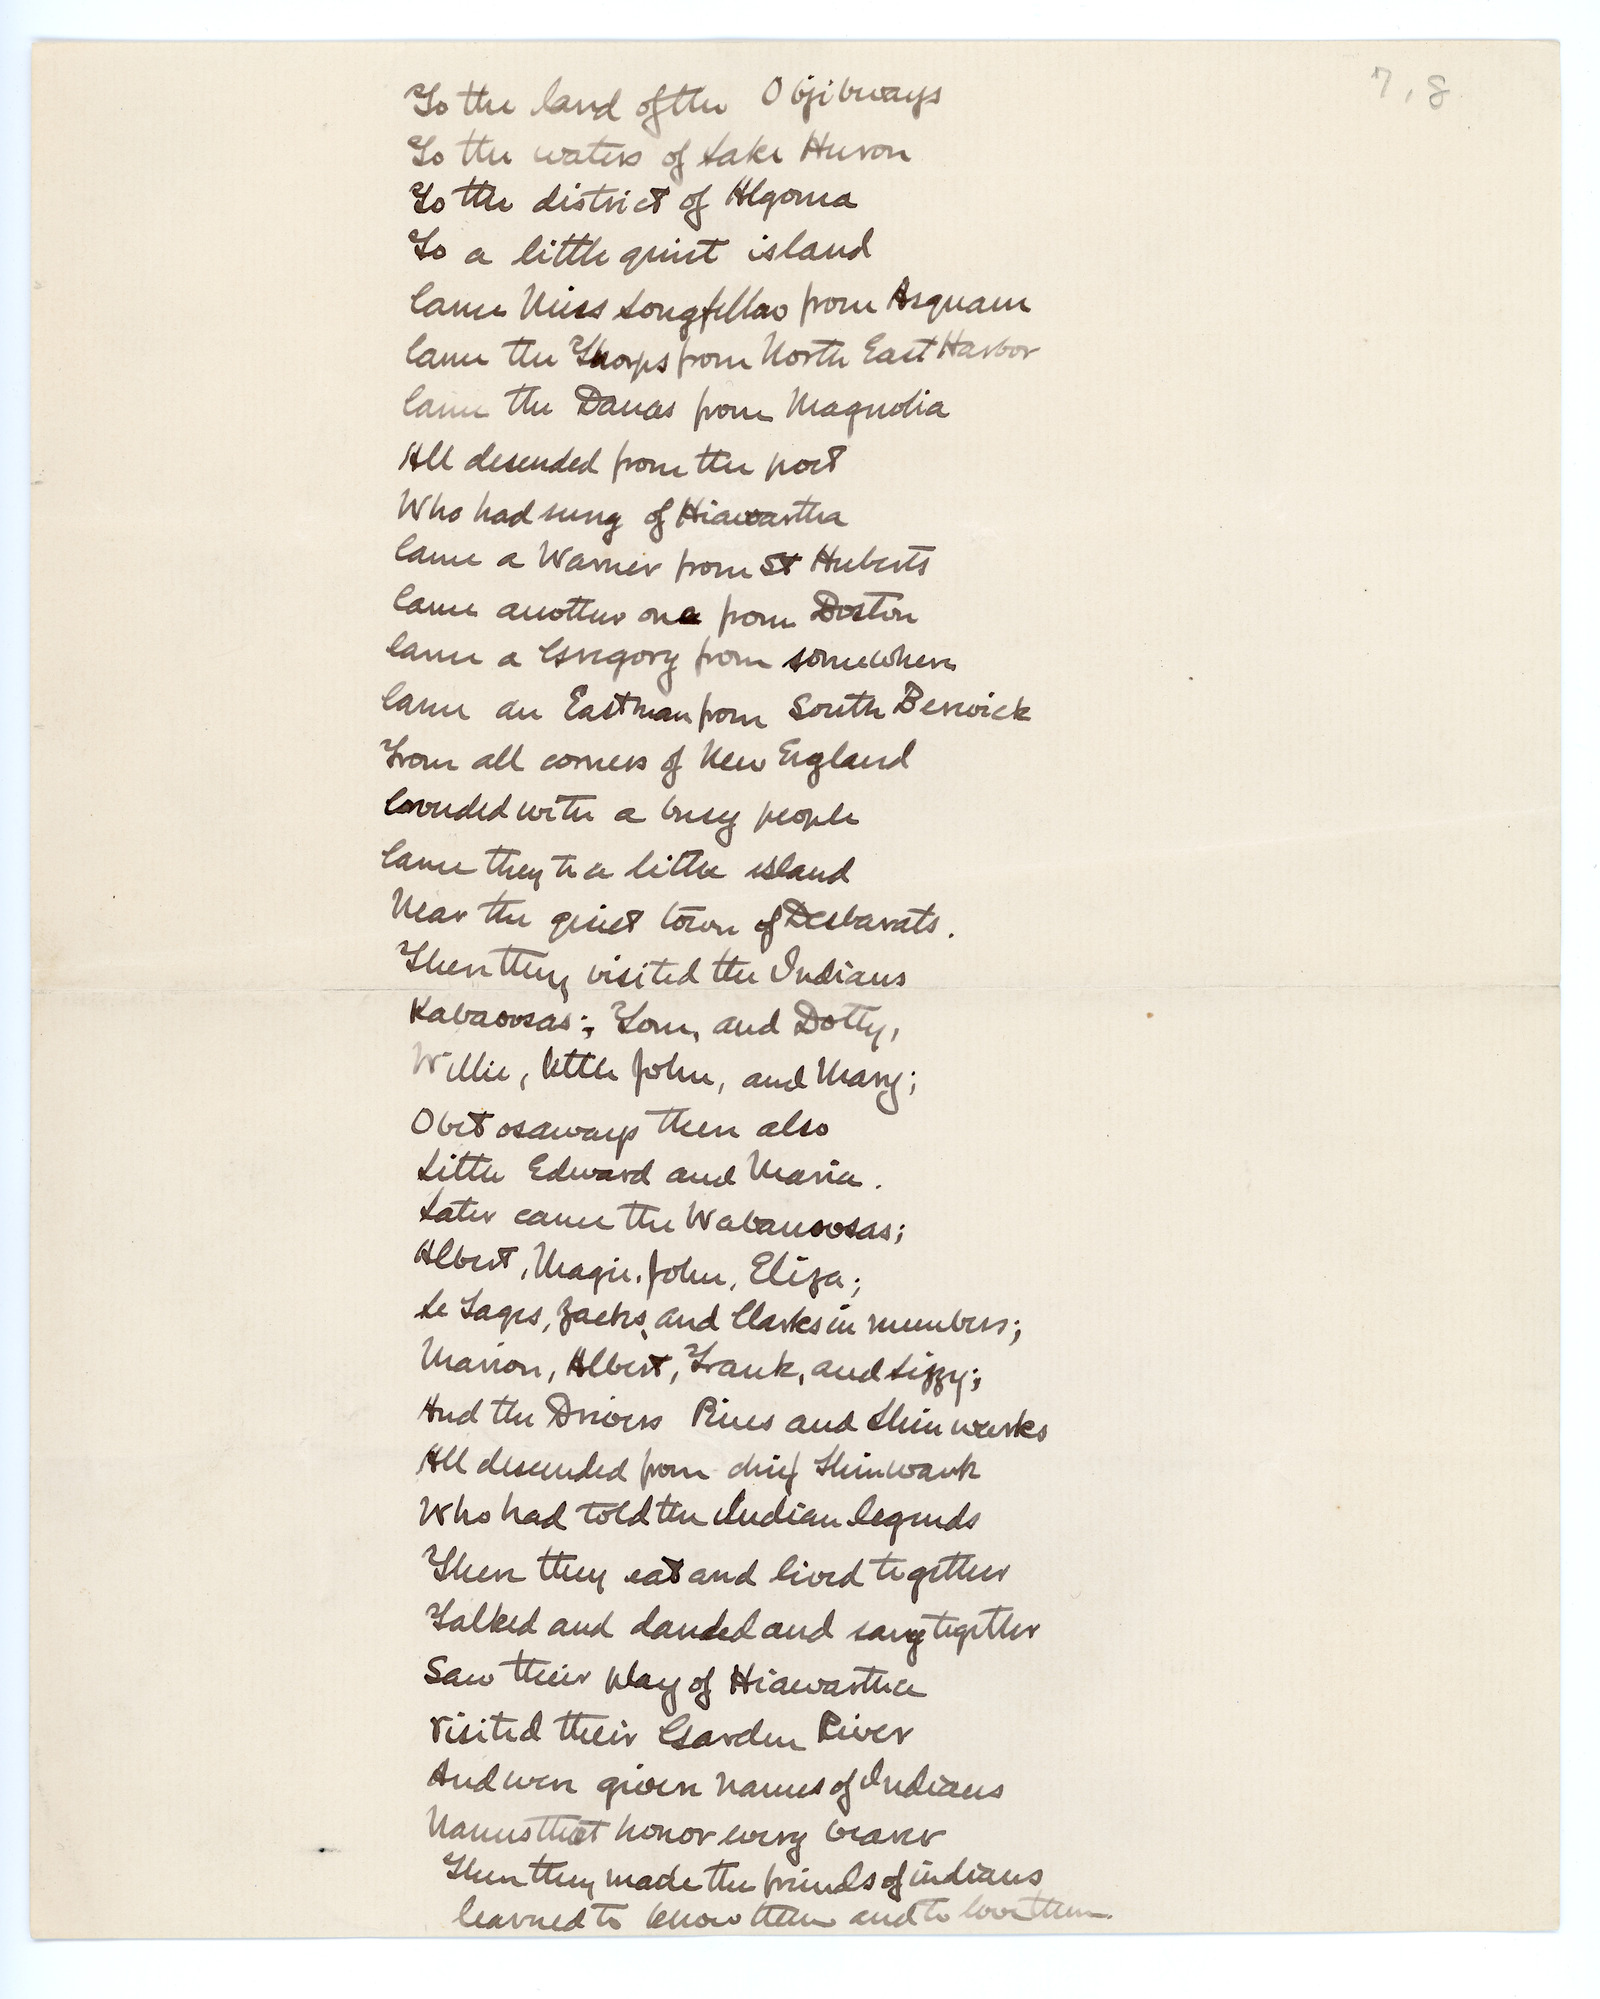 To the land of the Objibways
7, 8
To the waters of Lake Huron
To the district of Algoma
To a little quiet island
Came Miss Longfellow from Asquam
Came the Thorps from North East Harbor
Came the Danas from Magnolia
All desended from the poet
Who had sung of Hiawatha
Came a Warner from St Huberts
Came another one from Boston
Came a Gregory from somewhere
Came an Eastman from South Berwick
From all corners of New England
Crouded with a busy people
Came they to a little island
Near the quiet town of Desbarats.
There they visited the Indians
Kabaoosas; Tom, and Dotty,
Willie, little John, and Mary;
Obetosaways there also
Little Edward and Maria.
Later came the Wabanoosas;
Albert, Magie, John, Eliza;
Le Sages, Zacks, and Clarks in numbers;
Marion, Albert, Frank, and Lizzy;
And the Drivers Pines and Shinwauks
All descended from chief Shinwauk
Who had told the Indian legends
There they eat and lived together
Talked and danced and sang together
Saw their play of Hiawatha
Visited their Garden River
And were given names of Indians
Names that honor every bearer
There they made the friends of indians
learned to know them and to love them